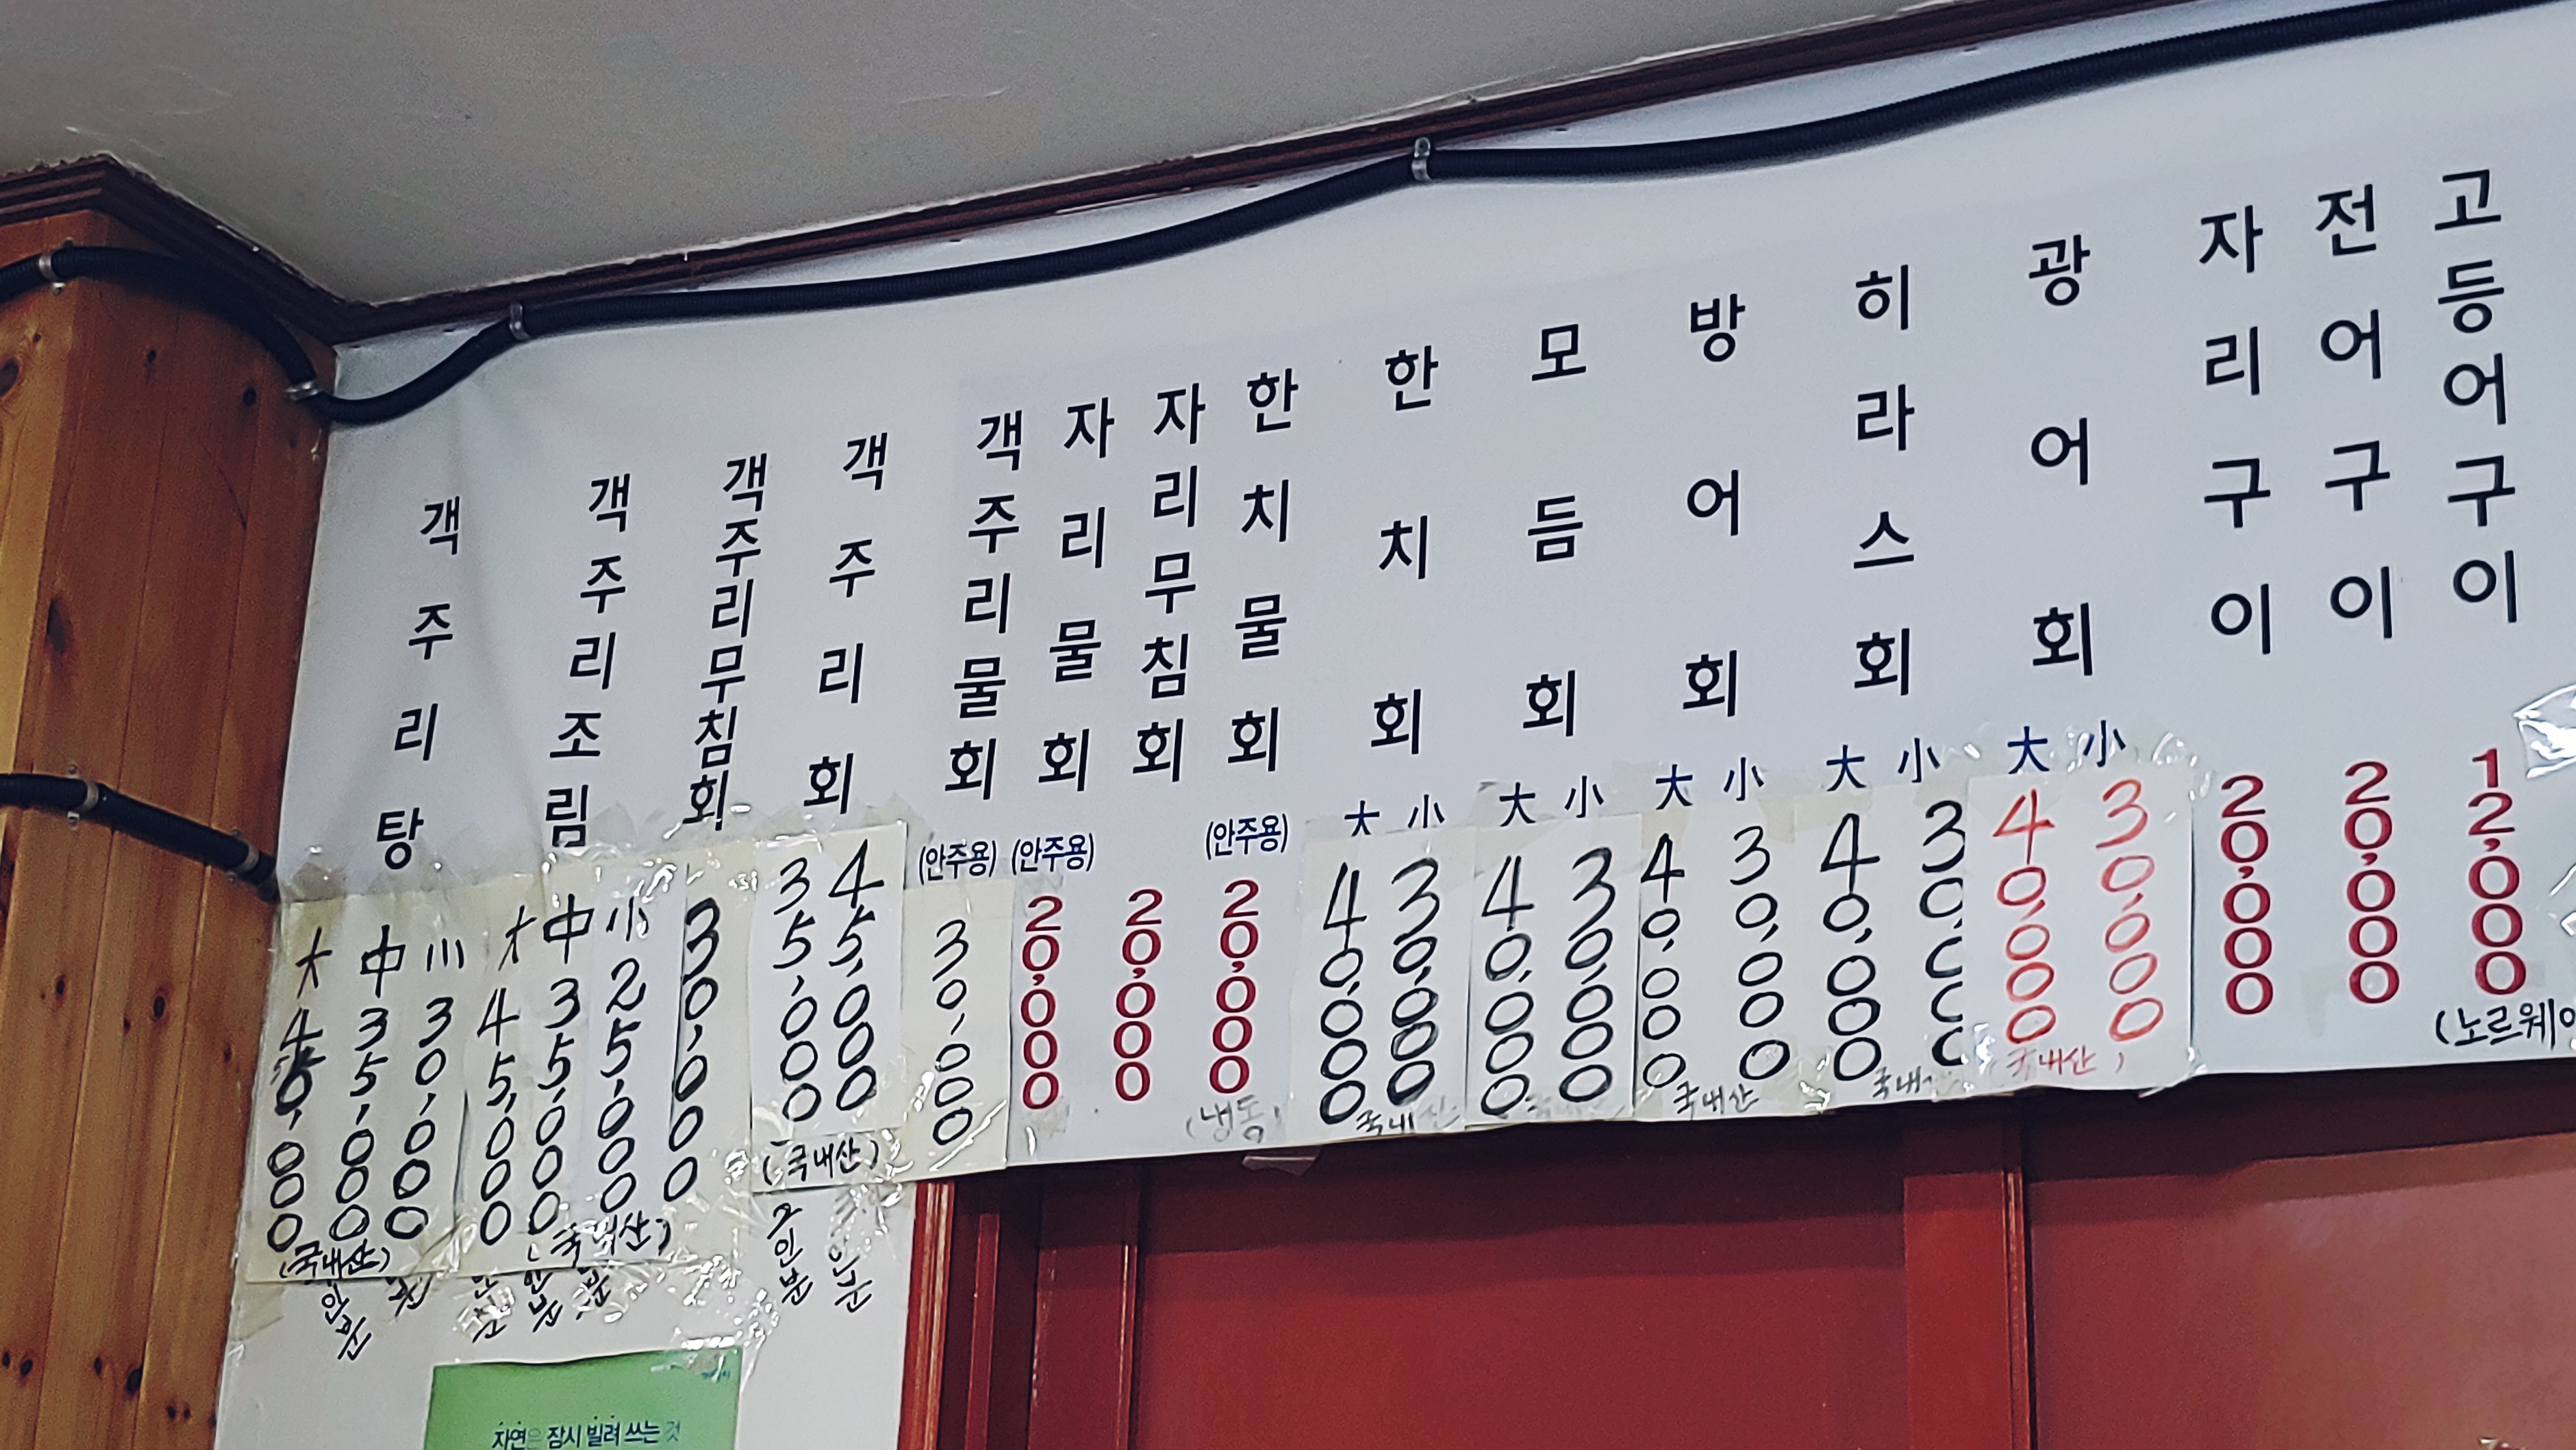 객주리탕
大 中 小
40,000 35,000 30,000
(국내산)
객주리조림
大 中 小
45,000 35,000 25,000
(국내산)
객주리무침회
30,000
객주리회
35,000 45,000
(국내산)
2인분
객주리물회
(안주용)
30,000
자리물회
(안주용)
20,000
자리무침회
20,000
한치물회
(안주용)
20,000
(냉동)
한치회
大 小
40,000 30,000
국내산
모듬회
大 小
40,000 30,000
방어회
大 小
40,000 30,000
국내산
히라스회
大 小
40,000 30,000
국내
광어회
大 小
40,000 30,000
국내산)
자리구이
20,000
전어구이
20,000
고등어구이
12,000
(노르웨이
자연은 잠시 빌려 쓰는 것